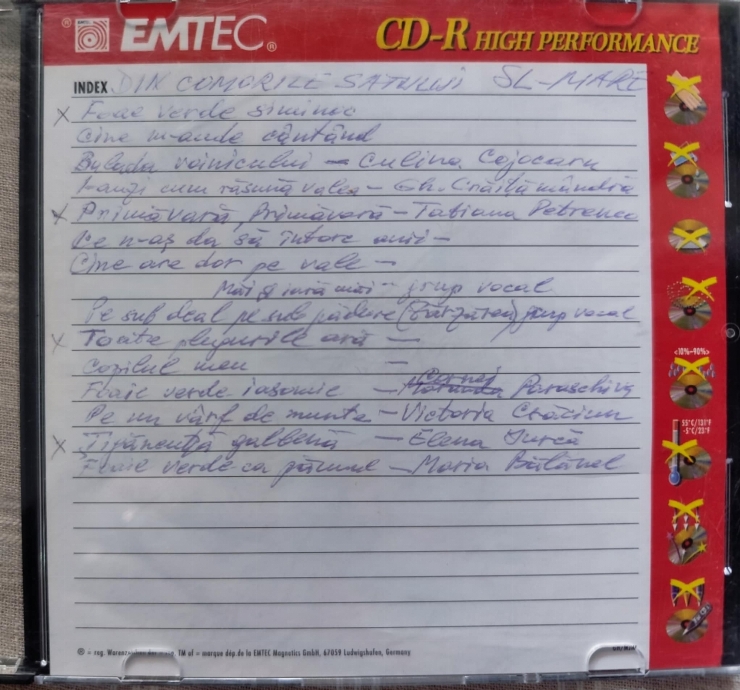 EMTEC® CD-R HIGH PERFORMANCE
INDEX DIN COMORILE SATULUI SL-MARE
X Foaie verde siminoc
Cine m-aude cântând
Balada voinicului – Culina Cojocaru
Gh. mândria
X Primăvară, primăvară – Tatiana Petrenco
Ce n-aș da să întorc anii –
Cine are dor pe vale –
grup vocal
Pe sub deal pe sub pădure grup vocal
X Toate plugurile ară –
Cozilul meu –
Foaie verde iasomie – Cernej Paraschiva
Pe un vârf de munte – Victoria Crăciun
X Țigăncușă galbenă – Elena Jurcă
Foaie verde ca pămul – Maria Bălănel
<10%-90%>
55°C/131°F
-5°C/23°F
® = reg. Warenzeichen TM of = marque dép. de la EMTEC Magnetics GmbH, 67059 Ludwigshafen, Germany